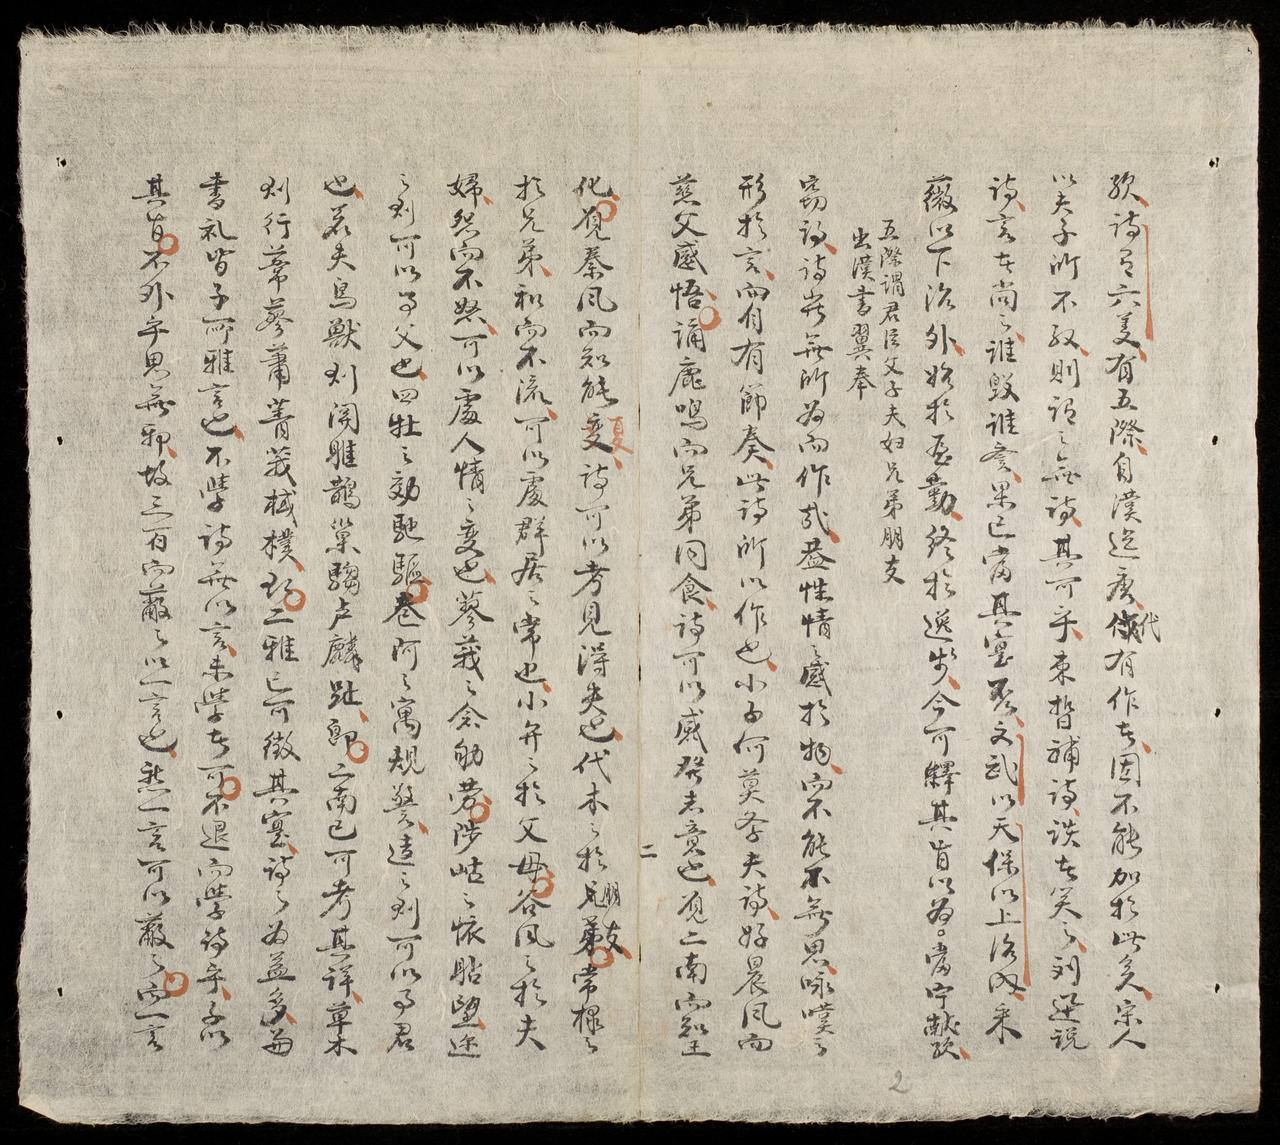 歟詩有六美有五際自漢迄唐代有作者固不能加於此矣宋人
以夫子所不取則謂之無詩其可乎束晳補詩談者笑之刘迅說
詩言者尚之誰毀誰宣果已當其實歟文武以天保以上治内采
薇以下治外始於憂勤終於逸步今可繹其旨以為當守歟
五際謂君臣父子夫妇兄弟朋友
出漢書翼奉
窃謂詩豈無所為而作哉蓋性情之感於物而不能不無思咏嘆之
形於言而自有節奏此詩所以作也小子何莫學夫詩好晨風而
慈父感悟誦鹿鳴而兄弟同食詩可以感發志意也覌二南而知王
化覌秦风而知能夏詩可以考見得失也伐木之於朋友常棣之
於兄弟和而不流可以處群居之常也小弁之於父母谷风之於夫
婦怨而不怒可以處人情之变也蓼莪之念劬劳陟岵之懷瞻望迩
之則可以事父也四牡之効馳驅卷阿之寓規警遠之則可以事君
也若夫鳥獸則関雎鵲巢騶虞麟趾即二南已可考其詳草木
則行葦蓼蕭菁莪棫樸即二雅已可徵其實詩之為益多矣
書礼皆子所雅言也不學詩無以言未學者可不退而學詩乎子以
其旨不外乎思無邪故三百而蔽之以一言也然一言可以蔽之而一言
二
2